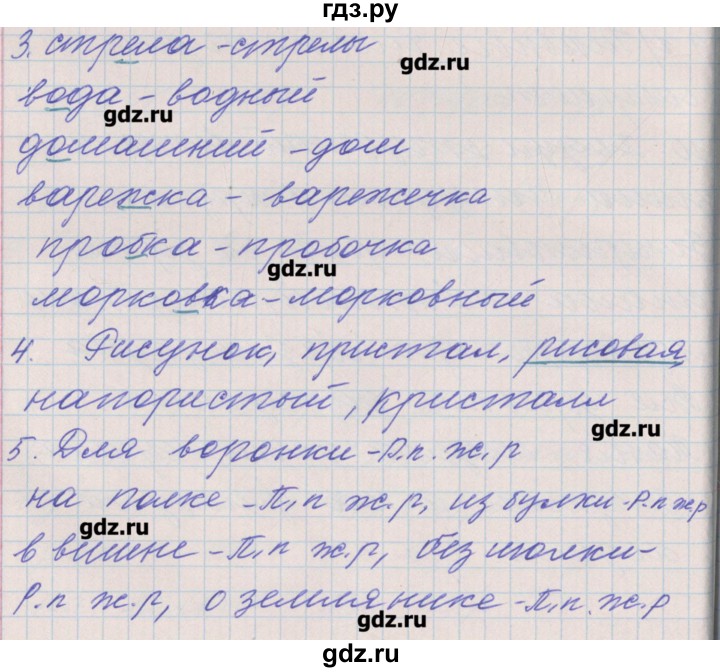 гдз.ру
3. стрела - стрелы
gdz.ru
вода - водный
gdz.ru
домашний - дом
варежка - варежечка
пробка - пробочка
gdz.ru
морковка - морковный
4. Рисунок, пристал, рисовая,
напористый, кристалл
gdz.ru
5. Для воронки - Р.п. ж.р
на полке - П.п ж.р, из булки - Р.п ж.р
gdz.ru
в вишне - П.п ж.р, без иголки -
Р.п ж.р, о землянике - П.п. ж.р
gdz.ru
gdz.ru